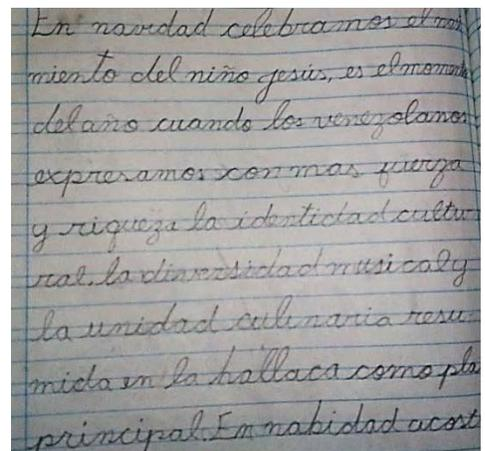 En navidad celebramos el naci
miento del niño jesús, es el momento
del año cuando los venezolanos
expresamos con mas fuerza
y riqueza la identidad cultu
ral. la diversidad musical y
la unidad culinaria resu
mida en la hallaca como pla
principal. En nabidad acost